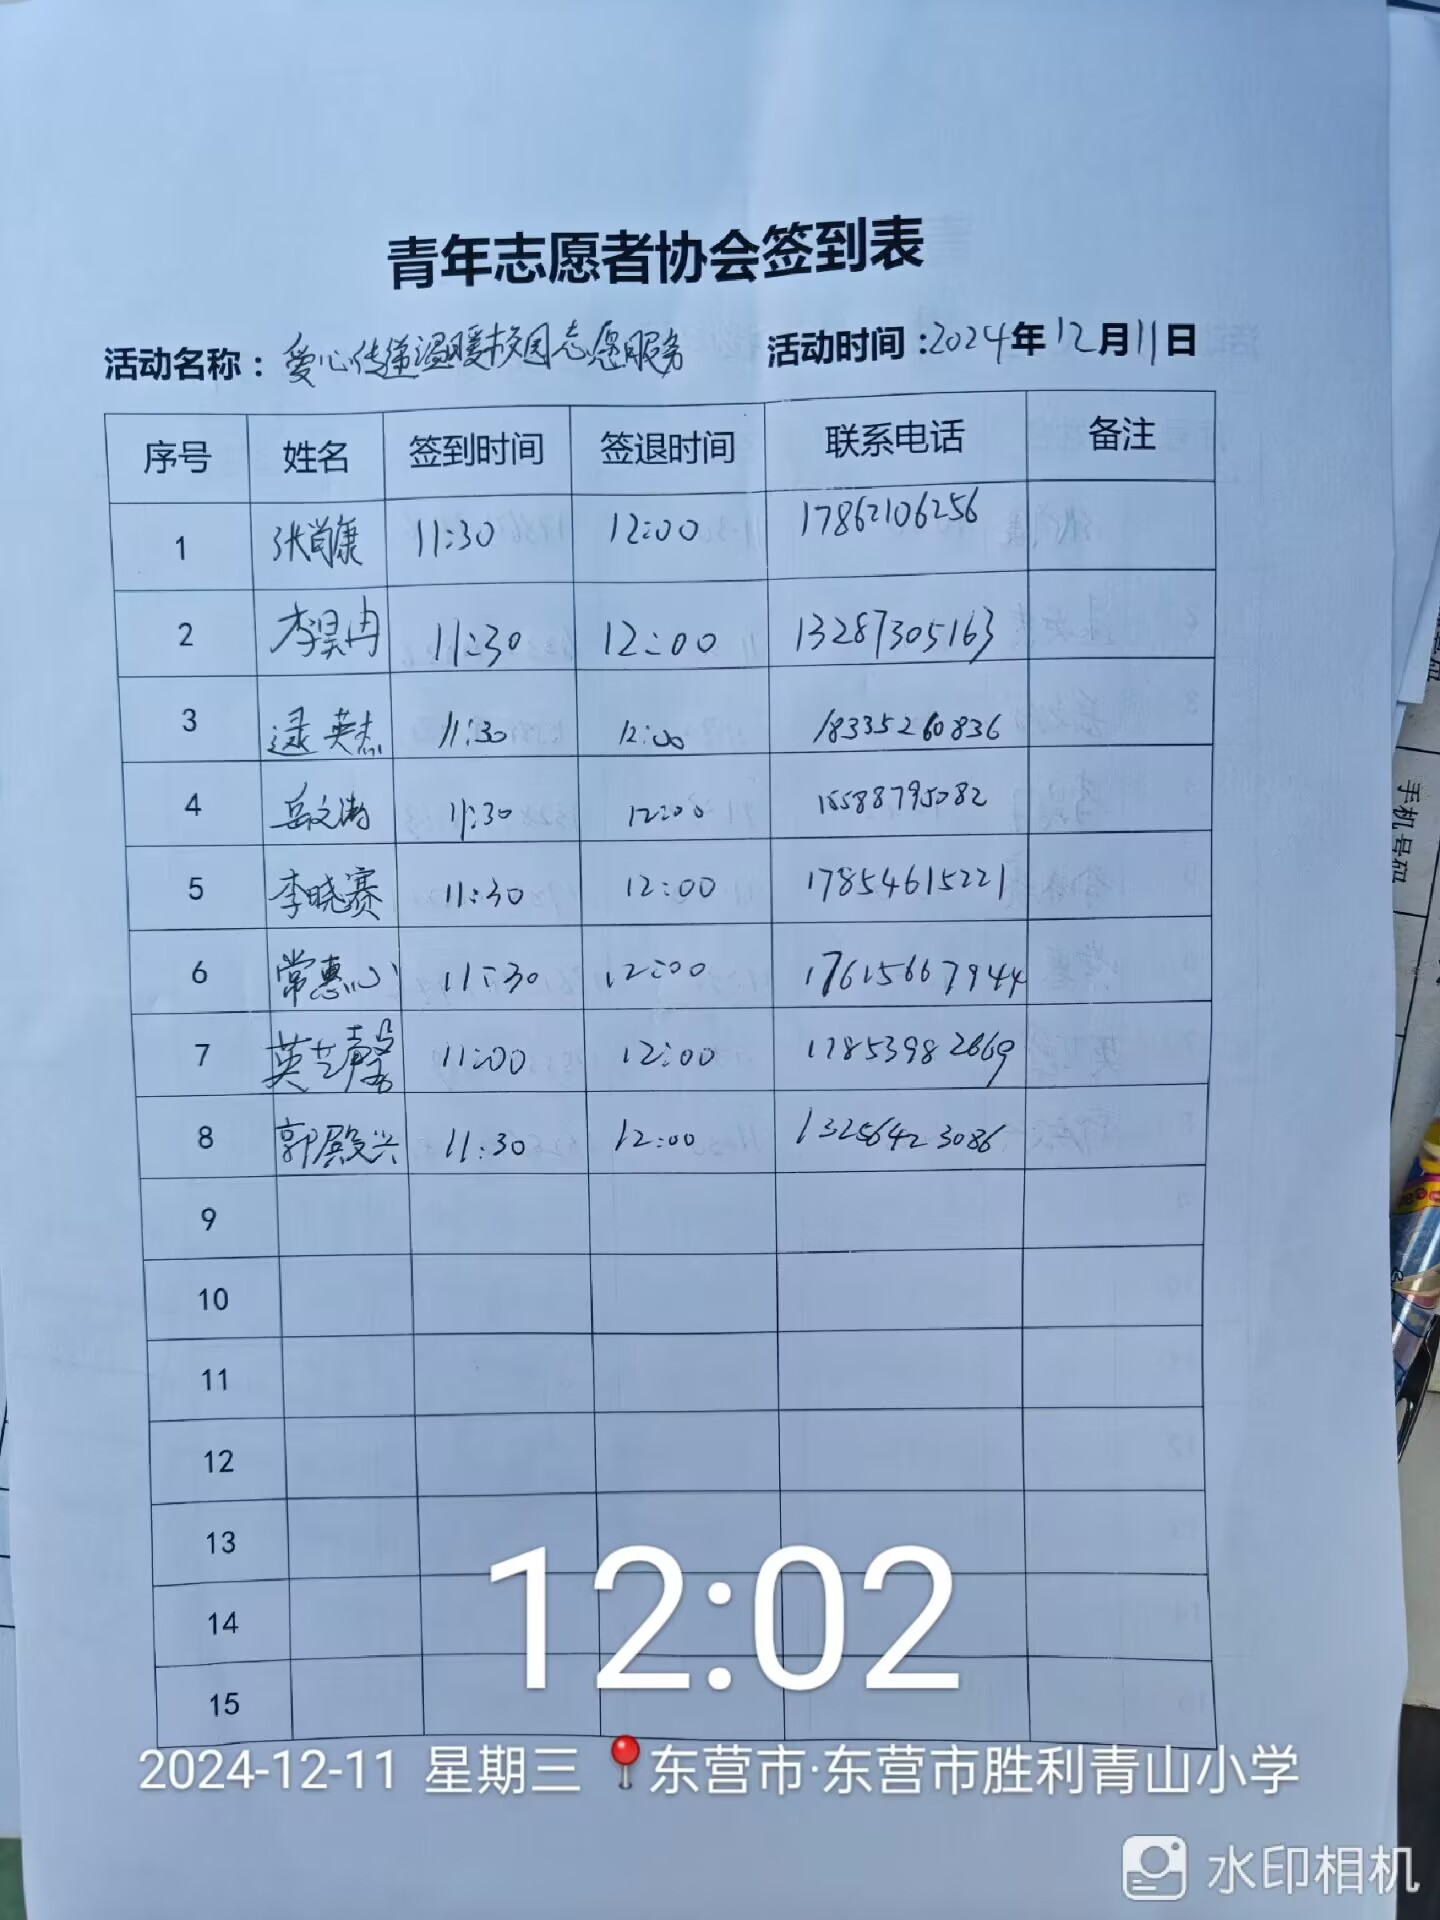 青年志愿者协会签到表
活动名称：爱心传递温暖校园志愿服务 活动时间：2024年12月11日
序号 姓名 签到时间 签退时间 联系电话 备注
1 张尚康 11:30 12:00 17862106256
2 李昊冉 11:30 12:00 13287305163
3 逯英杰 11:30 12:00 18335260836
4 岳文 11:30 12:00 15588795082
5 李晓赛 11:30 12:00 17854615221
6 常惠心 11:30 12:00 17615667944
7 英芝馨 11:00 12:00 17853982669
8 郭殿兴 11:30 12:00 13256423086
9
10
11
12
13
14
15
12:02
2024-12-11 星期三 东营市·东营市胜利青山小学
水印相机
手机号码